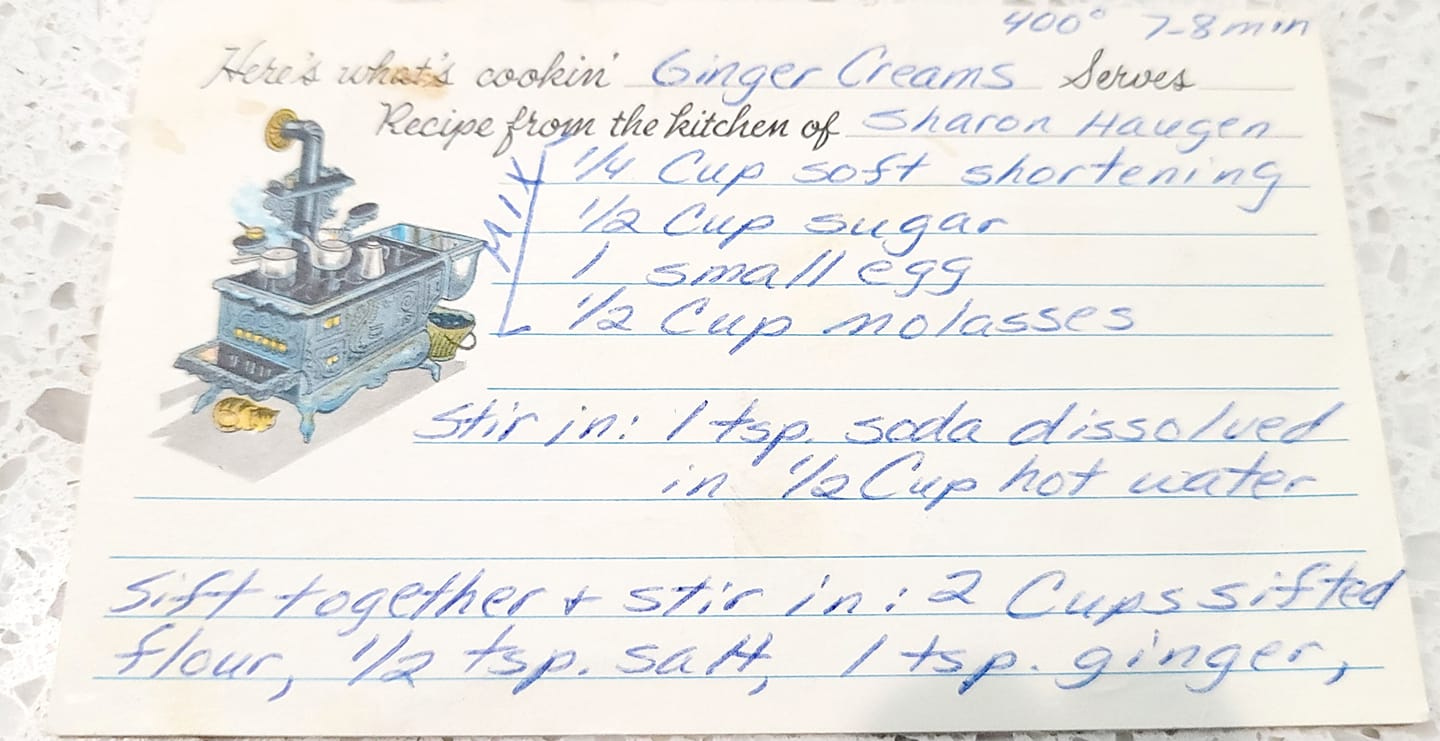 400° 7-8 min
Here's what's cookin' Ginger Creams Serves
Recipe from the kitchen of Sharon Haugen
Mix
1/4 Cup soft shortening
1/2 Cup sugar
1 small egg
1/2 Cup molasses
Stir in: 1 tsp. soda dissolved
in 1/2 Cup hot water
Sift together + stir in: 2 Cups sifted
flour, 1/2 tsp. salt, 1 tsp. ginger,